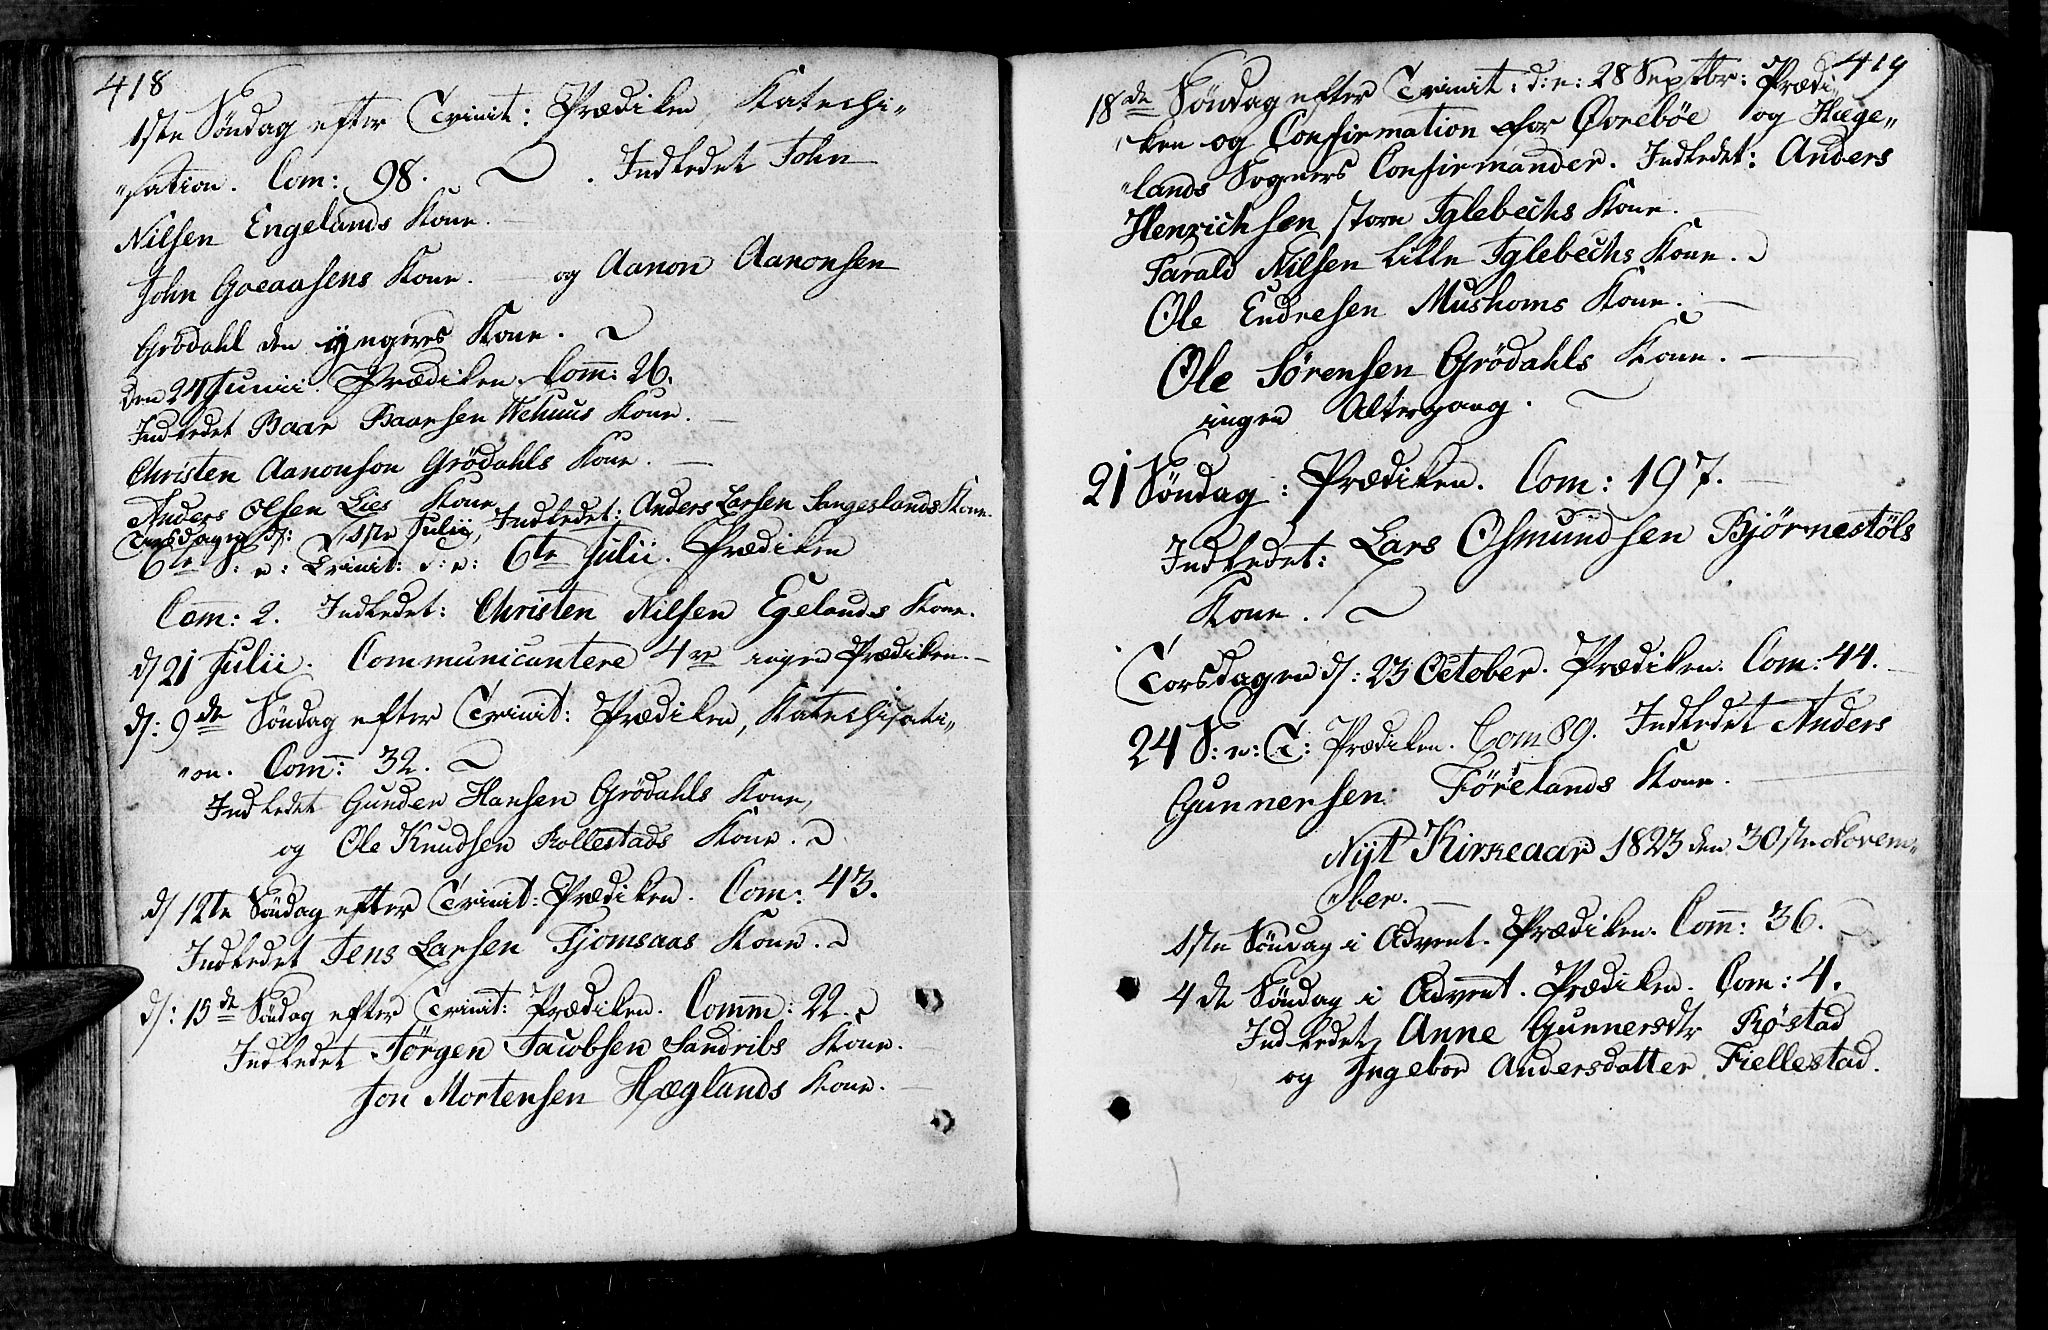 418
1ste Søndag efter Trinit: Prædiken, Katechi„
„sation. Com: 98. Indledet John
Nilsen Engelands Kone.
John Goeaasens Kone. og Aanon Aanonsen
Grödahl den yngeres Kone.
Den 24 Junii. Prædiken. Comm: 26.
Indledet Baar Baarsen Wehuus Kone.
Christen Aanonson Grödahls Kone.
Anders Olsen Lies Kone
Tirsdagen d: 1ste Julii, Indledet: Anders Larsen Sangeslands Kone.
6te S: e: Trinit: d: e: 6te Julii. Prædiken
Com: 2. Indledet: Christen Nilsen Egelands Kone.
d 21 Julii. Communicantere 4re ingen Prædiken.
d: 9de Søndag efter Trinit: Prædiken, Katechisati„
„on. Com: 32.
Indledet Gunder Hansen Grödahls Kone,
og Ole Knudsen Rollestads Kone.
d 12te Søndag efter Trinit: Prædiken. Com: 43.
Indledet Jens Larsen Fjomsaas Kone.
d: 15de Søndag efter Trinit: Prædiken. Comm: 22.
Indledet Jörgen Jacobsen Sandribs Kone.
Jon Mortensen Hæglands Kone.
419
18de Søndag efter Trinit: d: e: 28 Septbr: Prædi„
ken og Confirmation for Øvrebøe og Hæge„
„lands Sogners Confirmander. Indledet: Anders
Henrichsen store Iglebechs Kone.
Tarald Nilsen Lille Iglebechs Kone.
Ole Endresen Mushoms Kone.
Ole Sørensen Grödahls Kone.
ingen Altergang.
21 Søndag: Prædiken. Com: 197.
Indledet: Lars Osmundsen Bjørnestöls
Kone.
Torsdagen d: 23 October. Prædiken. Com: 44.
24 S: e: T: Prædiken. Com 89. Indledet Anders
Gunnersen Förelands Kone.
Nyt Kirkeaar 1823 den 30ste Novem„
„ber.
1ste Søndag i Advent. Prædiken. Com: 36.
4de Søndag i Advent. Prædiken. Com: 4.
Indledet, Anne Gunnersdtr Røstad
og Ingebor Andersdatter Fiellestad.